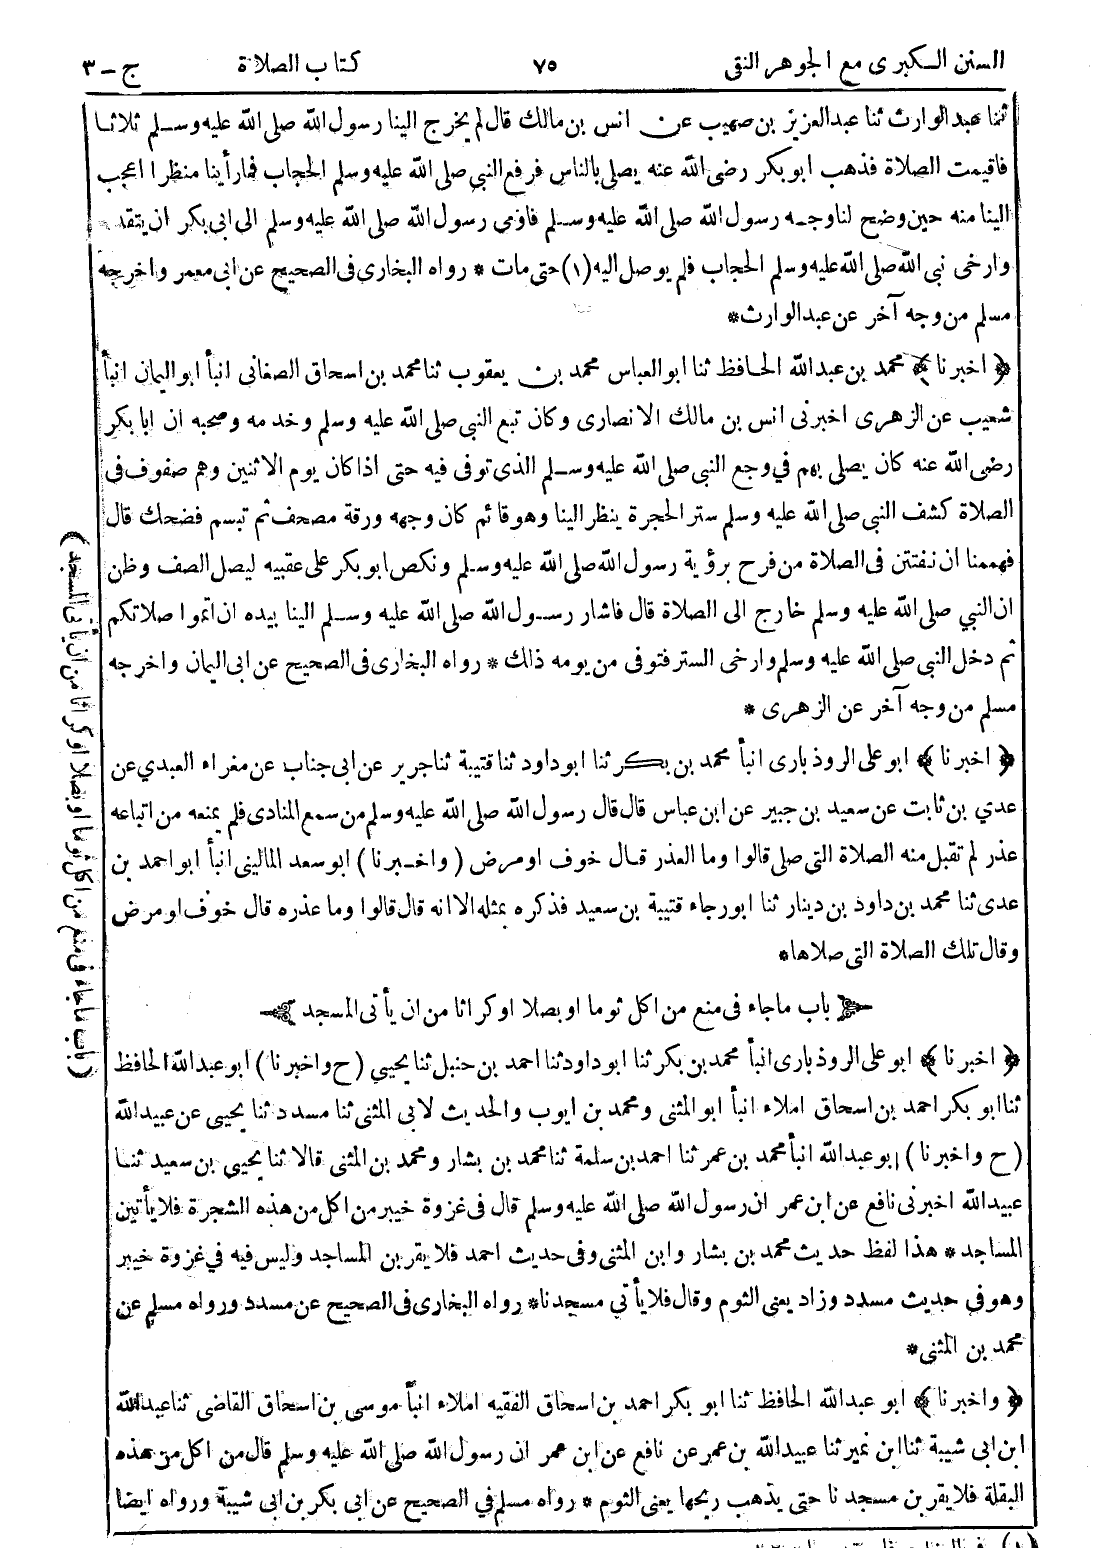 السنن الكبرى مع الجوهر النقى ٧٥ كتاب الصلاة ج - ٣
ثنا عبد الوارث ثنا عبد العزيز بن صهيب عن انس بن مالك قال لم يخرج الينا رسول الله صلى الله عليه وسلم ثلاثا
فاقيمت الصلاة فذهب ابو بكر رضى الله عنه يصلى بالناس فرفع النبى صلى الله عليه وسلم الحجاب فما رأينا منظرا اعجب
الينا منه حين وضح لنا وجه رسول الله صلى الله عليه وسلم فاومى رسول الله صلى الله عليه وسلم الى ابى بكر ان يتقدم
وارخى نبى الله صلى الله عليه وسلم الحجاب فلم يوصل اليه (١) حتى مات * رواه البخارى فى الصحيح عن ابى معمر واخرجه
مسلم من وجه آخر عن عبد الوارث *
﴿ اخبرنا ﴾ محمد بن عبد الله الحافظ ثنا ابو العباس محمد بن يعقوب ثنا محمد بن اسحاق الصغانى انبأ ابو اليمان انبأ
شعيب عن الزهرى اخبرنى انس بن مالك الانصارى وكان تبع النبى صلى الله عليه وسلم وخدمه وصحبه ان ابا بكر
رضى الله عنه كان يصلى بهم في وجع النبى صلى الله عليه وسلم الذى توفى فيه حتى اذا كان يوم الاثنين وهم صفوف فى
الصلاة كشف النبى صلى الله عليه وسلم ستر الحجرة ينظر الينا وهو قائم كان وجهه ورقة مصحف ثم تبسم فضحك قال
فهممنا ان نفتتن فى الصلاة من فرح برؤية رسول الله صلى الله عليه وسلم ونكص ابو بكر على عقبيه ليصل الصف وظن
ان النبي صلى الله عليه وسلم خارج الى الصلاة قال فاشار رسول الله صلى الله عليه وسلم الينا بيده ان اتموا صلاتكم
ثم دخل النبى صلى الله عليه وسلم وارخى الستر فتوفى من يومه ذلك * رواه البخارى فى الصحيح عن ابى اليمان واخرجه
مسلم من وجه آخر عن الزهرى *
﴿ اخبرنا ﴾ ابو على الروذبارى انبأ محمد بن بكر ثنا ابو داود ثنا قتيبة ثنا جرير عن ابى جناب عن مغراء العبدي عن
عدي بن ثابت عن سعيد بن جبير عن ابن عباس قال قال رسول الله صلى الله عليه وسلم من سمع المنادى فلم يمنعه من اتباعه
عذر لم تقبل منه الصلاة التى صلى قالوا وما العذر قال خوف او مرض ( واخبرنا ) ابو سعد المالينى انبأ ابو احمد بن
عدى ثنا محمد بن داود بن دينار ثنا ابو رجاء قتيبة بن سعيد فذكره بمثله الا انه قال قالوا وما عذره قال خوف او مرض
وقال تلك الصلاة التى صلاها *
باب ما جاء فى منع من اكل ثوما او بصلا او كراثا من ان يأتى المسجد
﴿ اخبرنا ﴾ ابو على الروذبارى انبأ محمد بن بكر ثنا ابو داود ثنا احمد بن حنبل ثنا يحيي ( ح واخبرنا ) ابو عبد الله الحافظ
ثنا ابو بكر احمد بن اسحاق املاء انبأ ابو المثنى ومحمد بن ايوب والحديث لابى المثنى ثنا مسدد ثنا يحيى عن عبيد الله
( ح واخبرنا ) ابو عبد الله انبأ محمد بن عمر ثنا احمد بن سلمة ثنا محمد بن بشار ومحمد بن المثنى قالا ثنا يحيى بن سعيد ثنا
عبيد الله اخبرنى نافع عن ابن عمر ان رسول الله صلى الله عليه وسلم قال فى غزوة خيبر من اكل من هذه الشجرة فلا يأتين
المساجد * هذا لفظ حديث محمد بن بشار وابن المثنى وفى حديث احمد فلا يقربن المساجد وليس فيه في غزوة خيبر
وهو فى حديث مسدد وزاد يعنى الثوم وقال فلا يأتي مسجدنا * رواه البخارى فى الصحيح عن مسدد ورواه مسلم عن
محمد بن المثنى *
﴿ واخبرنا ﴾ ابو عبد الله الحافظ ثنا ابو بكر احمد بن اسحاق الفقيه املاء انبأ موسى بن اسحاق القاضى ثنا عبد الله
ابن ابى شيبة ثنا ابن نمير ثنا عبيد الله بن عمر عن نافع عن ابن عمر ان رسول الله صلى الله عليه وسلم قال من اكل من هذه
البقلة فلا يقربن مسجدنا حتى يذهب ريحها يعنى الثوم * رواه مسلم في الصحيح عن ابى بكر بن ابى شيبة ورواه ايضا
( باب ما جاء فى منع من اكل ثوما او بصلا او كراثا من ان يأتى المسجد )